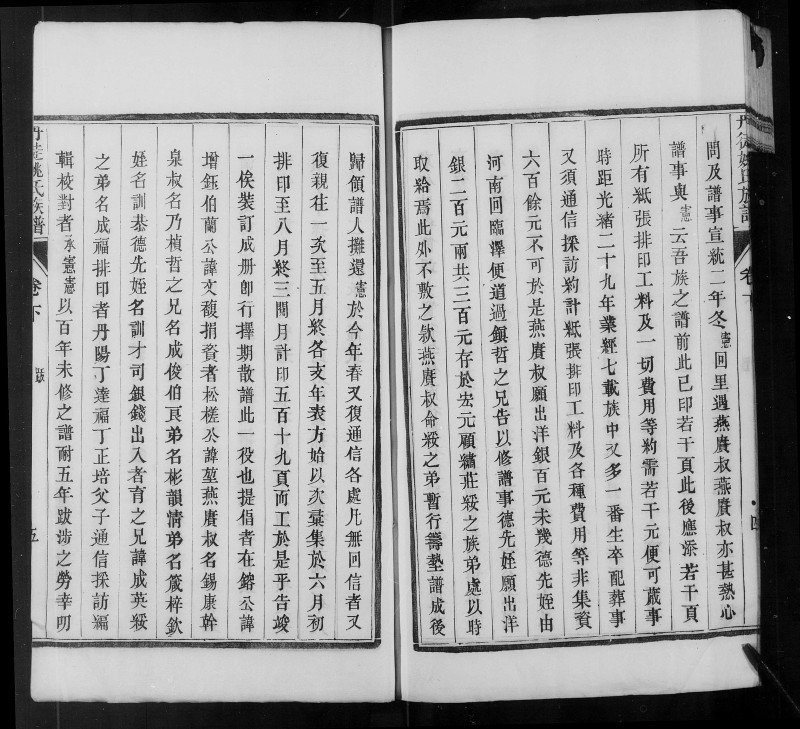 丹徒姚氏族譜
卷下
四
問及譜事宣統二年冬憲回里遇燕賡叔燕賡叔亦甚熱心
譜事與憲云吾族之譜前此已印若干頁此後應添若干頁
所有紙張排印工料及一切費用等約需若干元便可蕆事
時距光緒二十九年業經七載族中又多一番生卒配葬事
又須通信採訪約計紙張排印工料及各種費用等非集資
六百餘元不可於是燕賡叔願出洋銀百元未幾德先姪由
河南回臨澤便道過鎮哲之兄告以修譜事德先姪願出洋
銀二百元兩共三百元存於宏元顧繡莊綏之族弟處以時
取給焉此外不敷之款燕賡叔命綏之弟暫行籌墊譜成後
歸領譜人攤還憲於今年春又復通信各處凡無回信者又
復親往一次至五月終各支年表方始以次彙集於六月初
排印至八月終三閱月計印五百十九頁而工於是乎告竣
一俟裝訂成册卽行擇期散譜此一役也提倡者在鎔公諱
增鈺伯蘭公諱文馥捐資者松槎公諱堃燕賡叔名錫康幹
臬叔名乃楨哲之兄名成俊伯頁弟名彬韻清弟名箴梓欽
姪名訓恭德先姪名訓才司銀錢出入者育之兄諱成英綏
之弟名成福排印者丹陽丁達福丁正培父子通信採訪編
輯校對者承憲憲以百年未修之譜耐五年跋涉之勞幸叨
丹徒姚氏族譜
卷下
跋
五